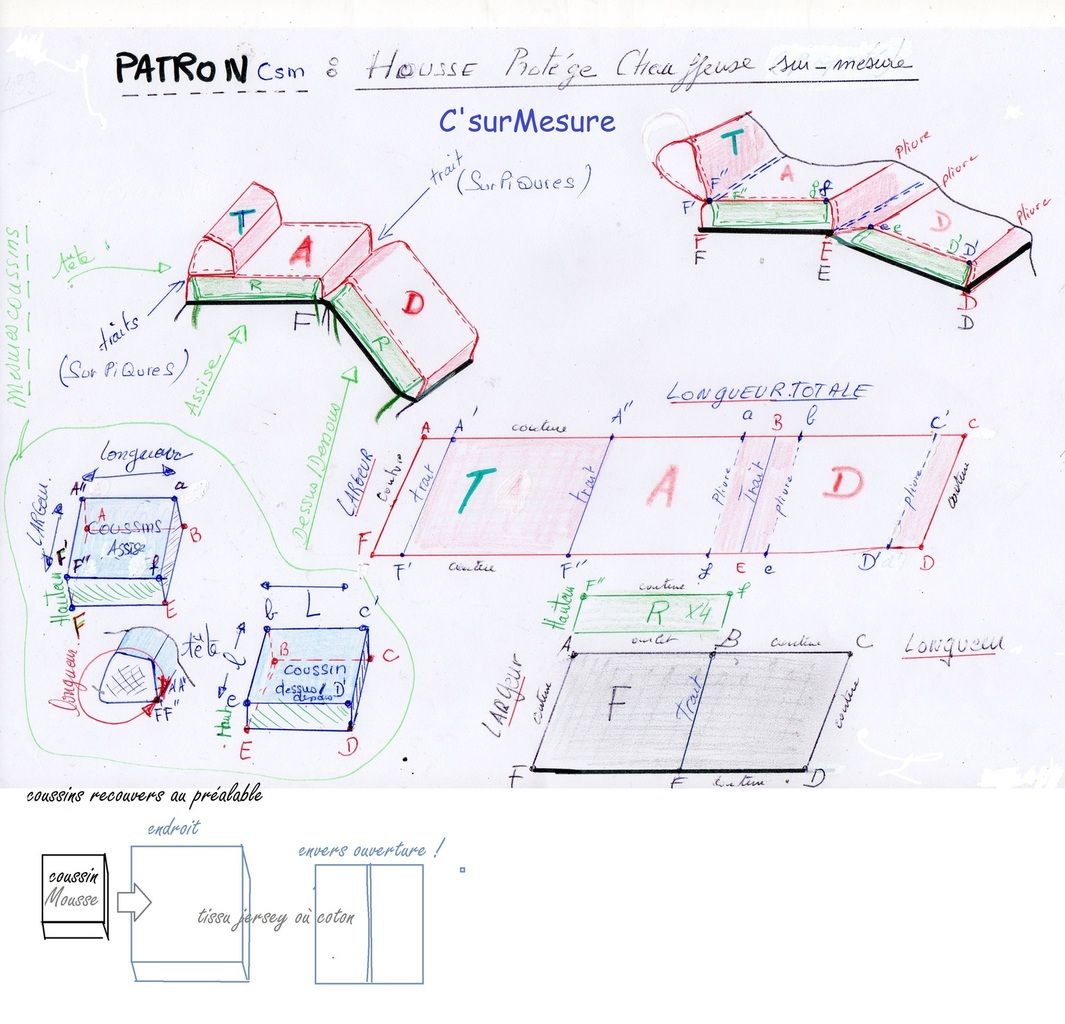 PATRON Csm : HOUSSE Protège Chauffeuse sur-mesure
C'surMesure
trait
(SurPiqûres)
T
A
R
D
R
F
tête
traits
(SurPiQures)
Assise
Dessus/Dessous
Mesures coussins
T
A
D
pliure
pliure
pliure
F'
F"
F"
f
e
e
D'
D'
F
F
E
E
D
D
LONGUEUR TOTALE
LARGEUR
A
A'
couture
A"
a
B
b
C'
C
couture
trait
T
trait
A
pliure
Trait
pliure
D
pliure
couture
F
F'
couture
F"
f
E
e
D'
D
Hauteur
F"
couture
f
R x4
ourlet
A
B
couture
C
Longueur
LARGEUR
couture
F
Trait
couture
F
E
couture
D
Longueur
LARGEUR
A"
a
A
B
coussins
Assise
F'
F"
f
Hauteur
F
E
L
b
c'
l
B
C
coussin
dessus/
dessous
D'
e
Haut
E
D
Longueur
tête
AA"
FF"
coussins recouvers au préalable
endroit
envers ouverture !
coussin
Mousse
tissu jersey où coton